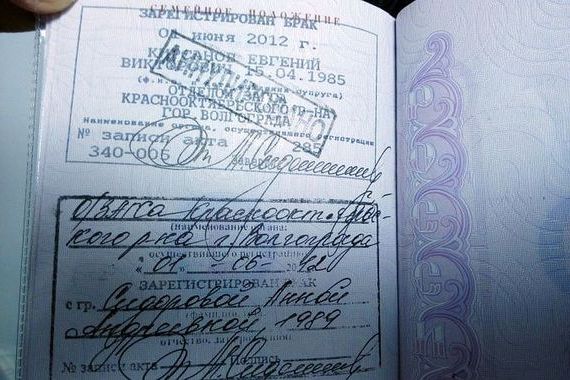 СЕМЕЙНОЕ ПОЛОЖЕНИЕ
ЗАРЕГИСТРИРОВАН БРАК
01 июня 2012 г.
ЕВГЕНИЙ
15.04.1985
ОТДЕЛОМ ЗАГСА
КРАСНООКТЯБРЬСКОГО Р-НА
ГОР. ВОЛГОГРАДА
Наименование органа, осуществившего регистрацию
№ записи акта 285
340-006
О/ЗАГСа Краснооктябрьс-
кого р-на г. Волгограда
(наименование органа:
осуществившего регистрацию)
"01" - 06 - 2012
ЗАРЕГИСТРИРОВАН БРАК
с гр. Сидоровой Анной
Андреевной, 1989
отчество, дата рождения
№ записи акта Подпись